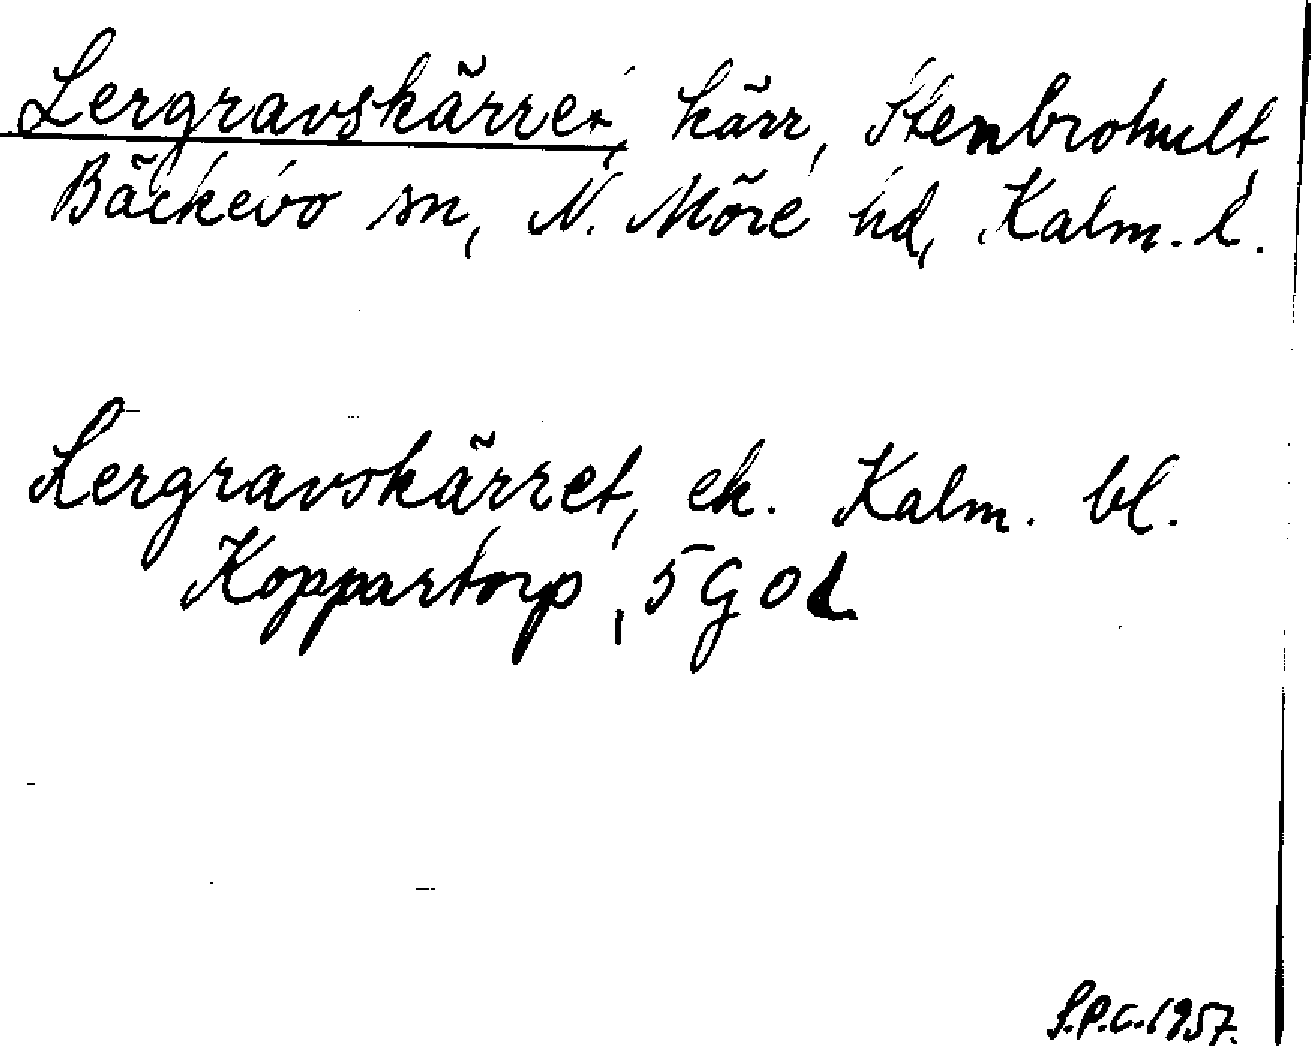 Lergravskärret, kärr, Stenbrohult,
Bäckebo sn, N. Möre hd, Kalm. l.
Lergravskärret, ek. Kalm. bl.
Koppartorp, 5G0d
S.P.C. 1957.